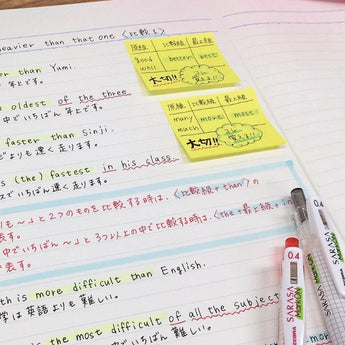 heavier than that one 〈比較1〉
er than Yumi.
年上です。
oldest of the three
中でいちばん年上です。
faster than Sinji.
より速く走ります。
s (the) fastest in his class.
スでいちばん速く走ります。
原級 比較級 最上級
good better best
well
大切!! 覚えよう!
原級 比較級 最上級
many more most
much
大切!! 覚えよう!
も〜」と2つのものを比較する時は、〈比較級+than〉の
表す。
中でいちばん〜」と3つ以上の中で比較する時は、〈the+最上級+in
表す。
th is more difficult than English.
学は英語よりも難しい。
the most difficult of all the subject
中でいちばん難しい。
0.4
SARASA
ZEBRA
0.4
SARASA